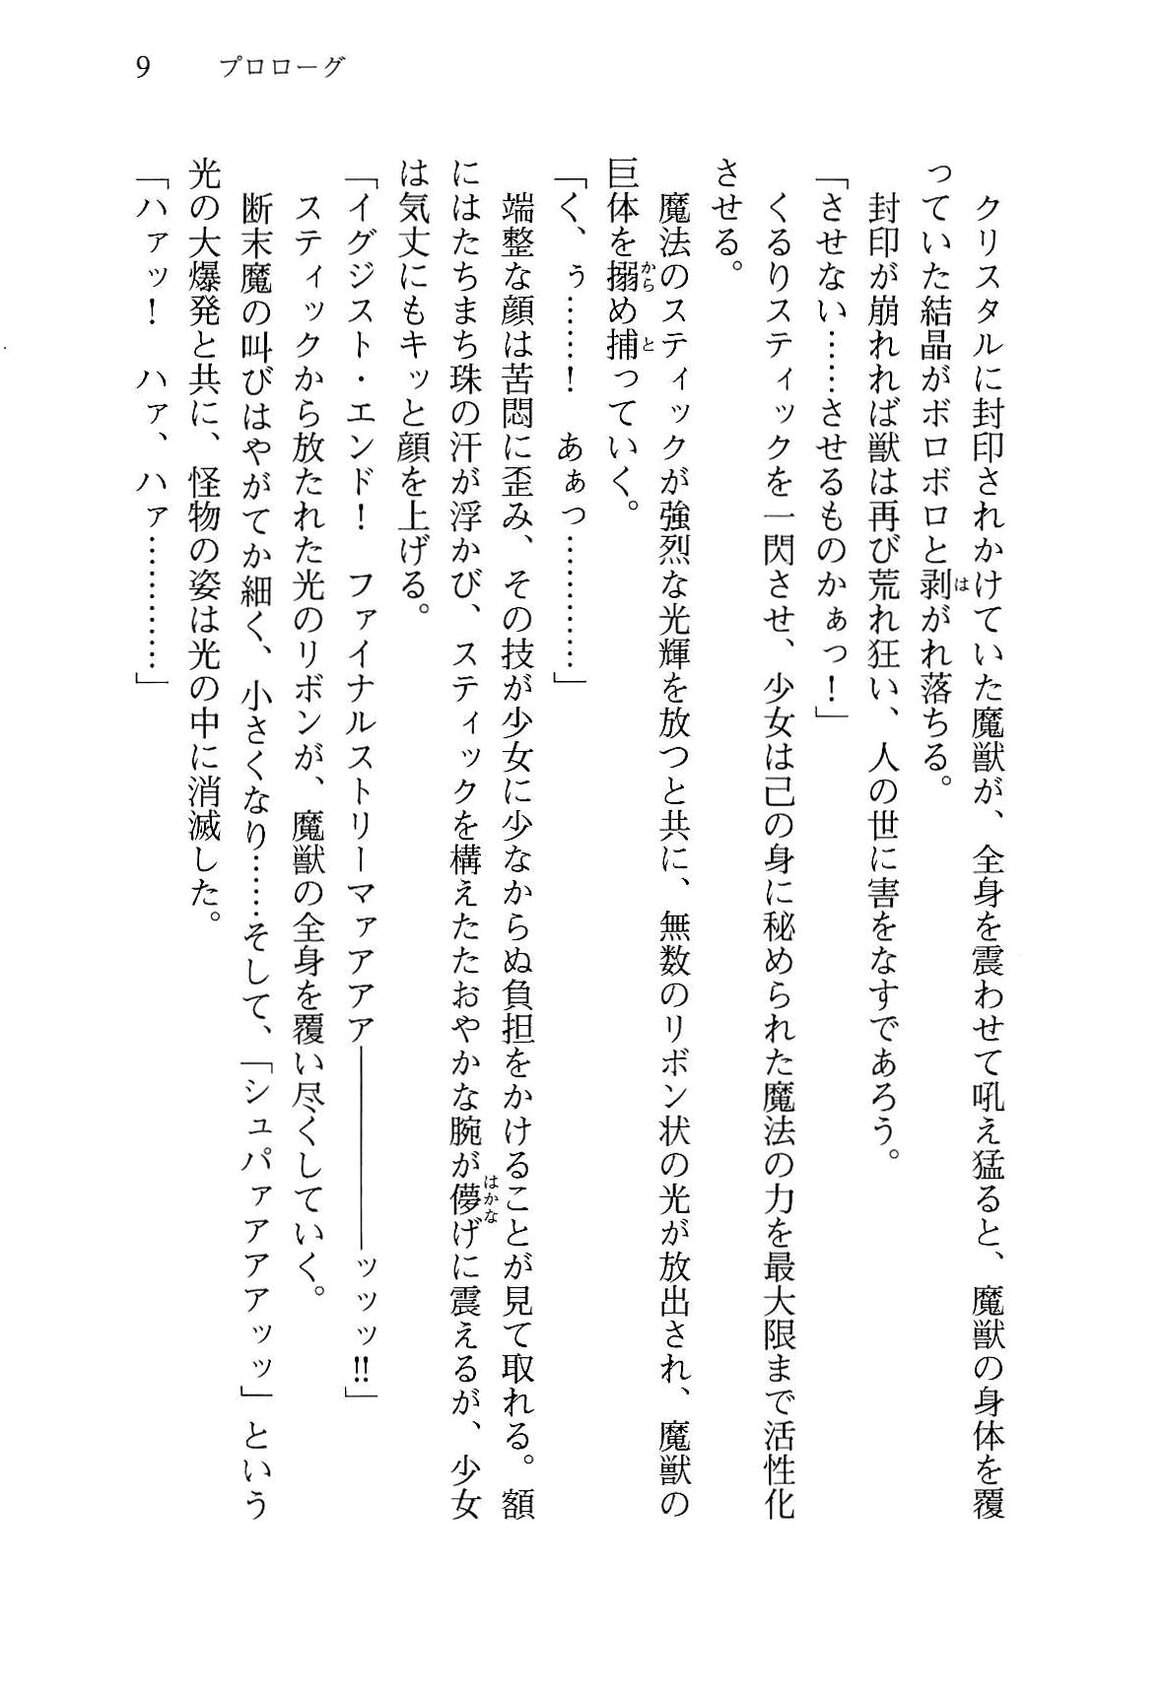 9　プロローグ
　クリスタルに封印されかけていた魔獣が、全身を震わせて吼え猛ると、魔獣の身体を覆
っていた結晶がボロボロと剥がれ落ちる。
は
　封印が崩れれば獣は再び荒れ狂い、人の世に害をなすであろう。
「させない……させるものかぁっ！」
　くるりスティックを一閃させ、少女は己の身に秘められた魔法の力を最大限まで活性化
させる。
　魔法のスティックが強烈な光輝を放つと共に、無数のリボン状の光が放出され、魔獣の
巨体を搦め捕っていく。
から
と
「く、ぅ……！　あぁっ…………」
　端整な顔は苦悶に歪み、その技が少女に少なからぬ負担をかけることが見て取れる。額
にはたちまち珠の汗が浮かび、スティックを構えたたおやかな腕が儚げに震えるが、少女
はかな
は気丈にもキッと顔を上げる。
「イグジスト・エンド！　ファイナルストリーマァアアア――――――ッッッ!!」
　スティックから放たれた光のリボンが、魔獣の全身を覆い尽くしていく。
　断末魔の叫びはやがてか細く、小さくなり……そして、「シュパァアアアッッ」という
光の大爆発と共に、怪物の姿は光の中に消滅した。
「ハァッ！　ハァ、ハァ…………」